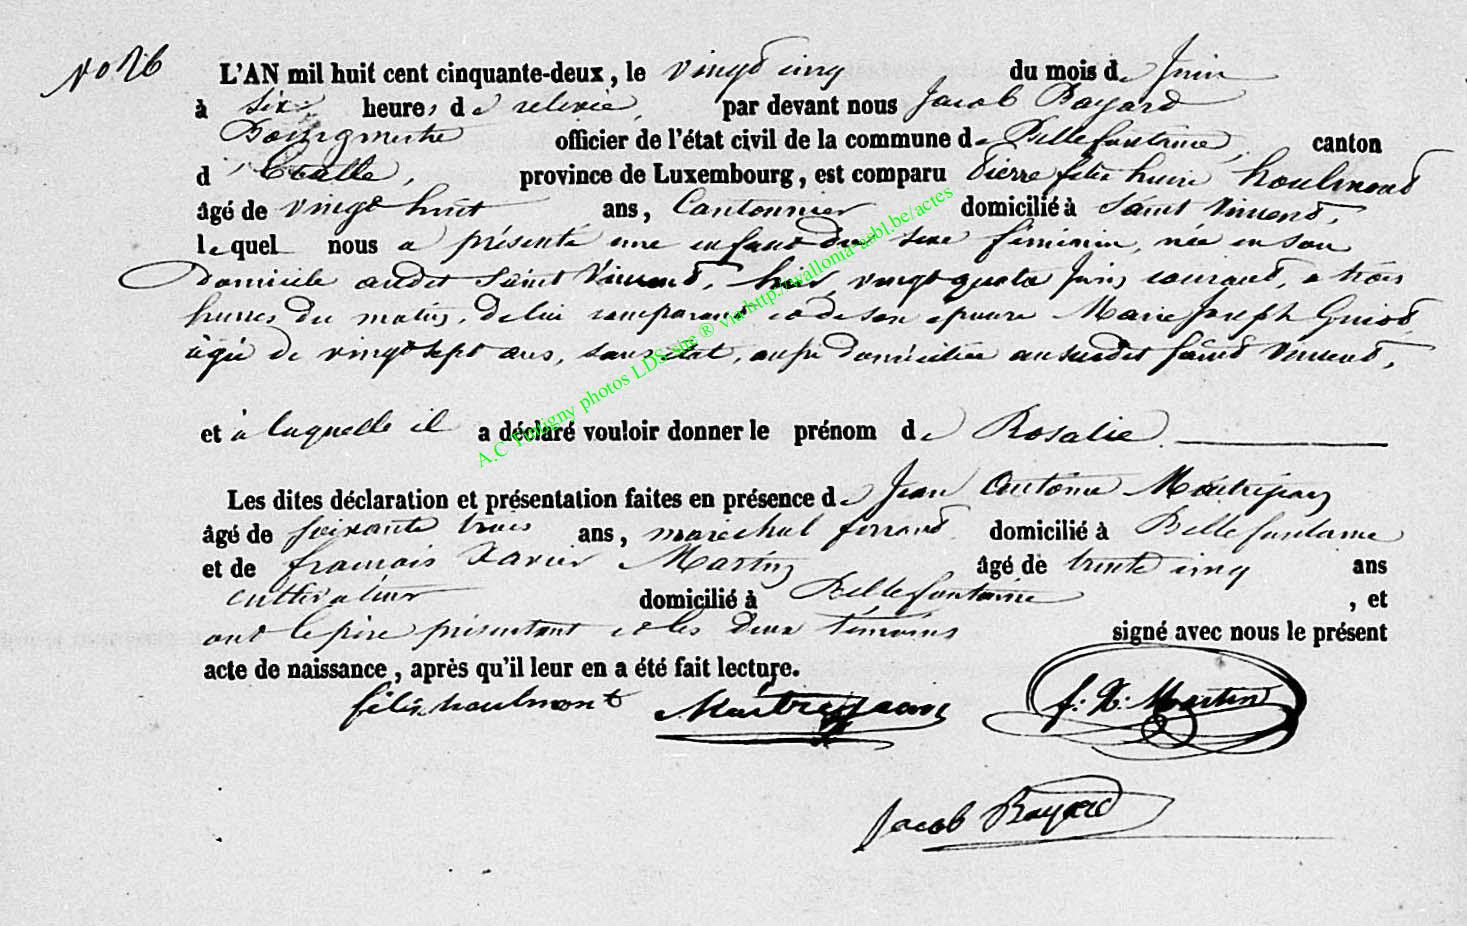 No 26
L'AN mil huit cent cinquante-deux, le vingt cinq du mois de Juin
à six heures de relevée, par devant nous Jacob Bayard
Bourgmestre officier de l'état civil de la commune de Bellefontaine, canton
d'Etalle, province de Luxembourg, est comparu Pierre felix houlmont
âgé de vingt huit ans, Cantonnier domicilié à Saint Vincent,
lequel nous a présenté une enfant du sexe féminin, née en son
Domicile audit Saint Vincent, hier, vingt quatre Juin courant, a trois
heures du matin, de lui comparant et de son epouse Marie Joseph Guiot
âgée de vingt sept ans, sans état, aussi domiciliée au susdit Saint Vincent,
et à laquelle il a déclaré vouloir donner le prénom de Rosalie.
Les dites déclaration et présentation faites en présence de Jean Antoine Maitrejean
âgé de soixante trois ans, marechal ferrant domicilié à Bellefontaine
et de françois Xavier Martin âgé de trente cinq ans
cultivateur domicilié à Bellefontaine, et
ont le père présentant et les deux témoins signé avec nous le présent
acte de naissance, après qu'il leur en a été fait lecture.
felix houlmont Maitrejean f. X. Martin
Jacob Bayard
A.C Tintigny photos LDS site ® via http://wallonia-asbl.be/actes